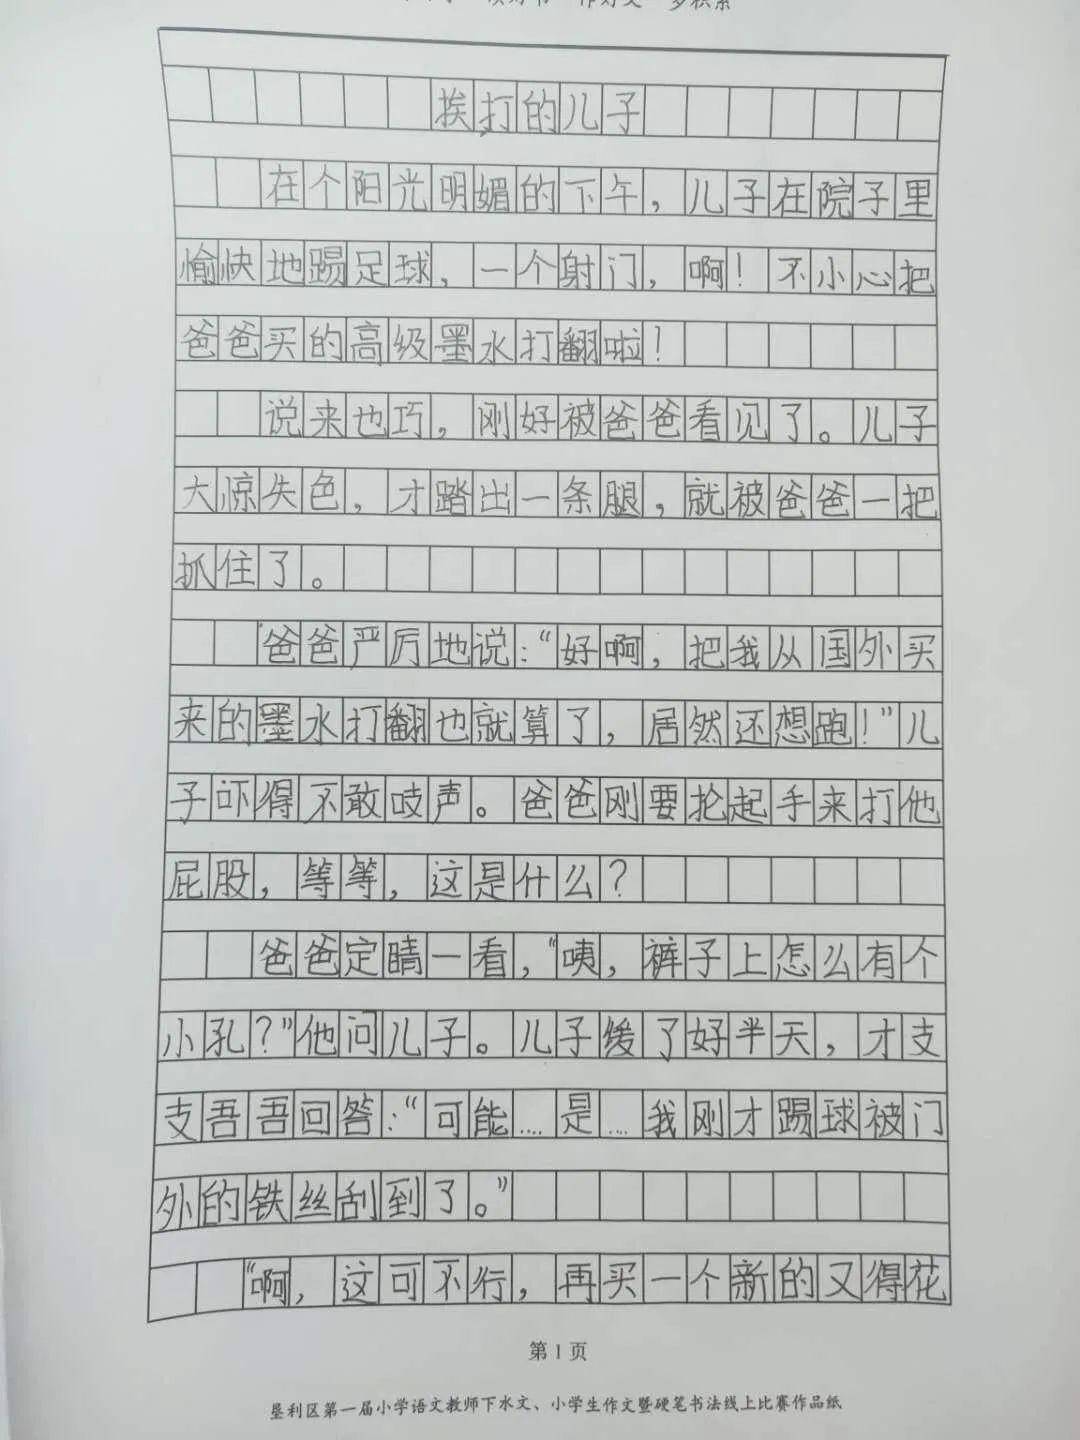 读好书 作好文 多积累
挨打的儿子
在个阳光明媚的下午，儿子在院子里
愉快地踢足球，一个射门，啊！不小心把
爸爸买的高级墨水打翻啦！
说来也巧，刚好被爸爸看见了。儿子
大惊失色，才踏出一条腿，就被爸爸一把
抓住了。
爸爸严厉地说：“好啊，把我从国外买
来的墨水打翻也就算了，居然还想跑！”儿
子吓得不敢吱声。爸爸刚要抡起手来打他
屁股，等等，这是什么？
爸爸定睛一看，“咦，裤子上怎么有个
小孔？”他问儿子。儿子缓了好半天，才支
支吾吾回答：“可能....是....我刚才踢球被门
外的铁丝刮到了。”
“啊，这可不行，再买一个新的又得花
第1页
垦利区第一届小学语文教师下水文、小学生作文暨硬笔书法线上比赛作品纸